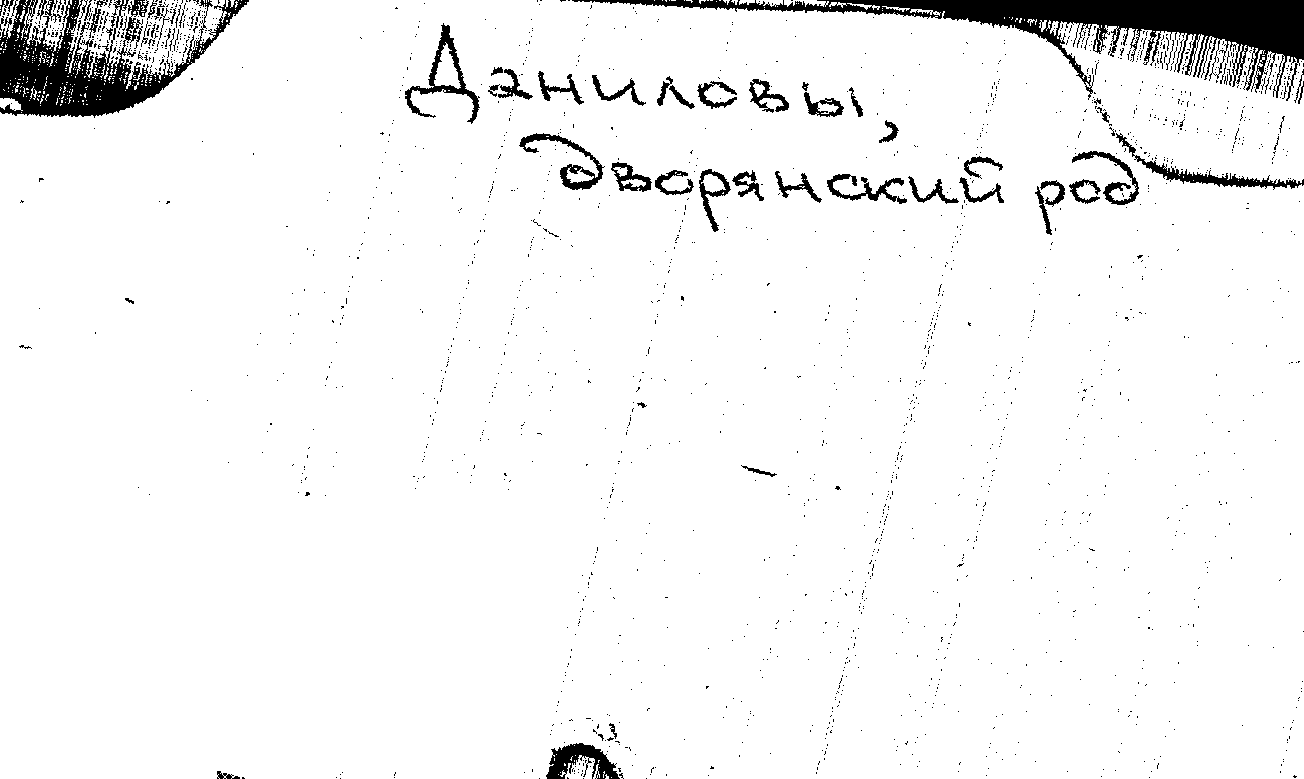 Даниловы,
дворянский род